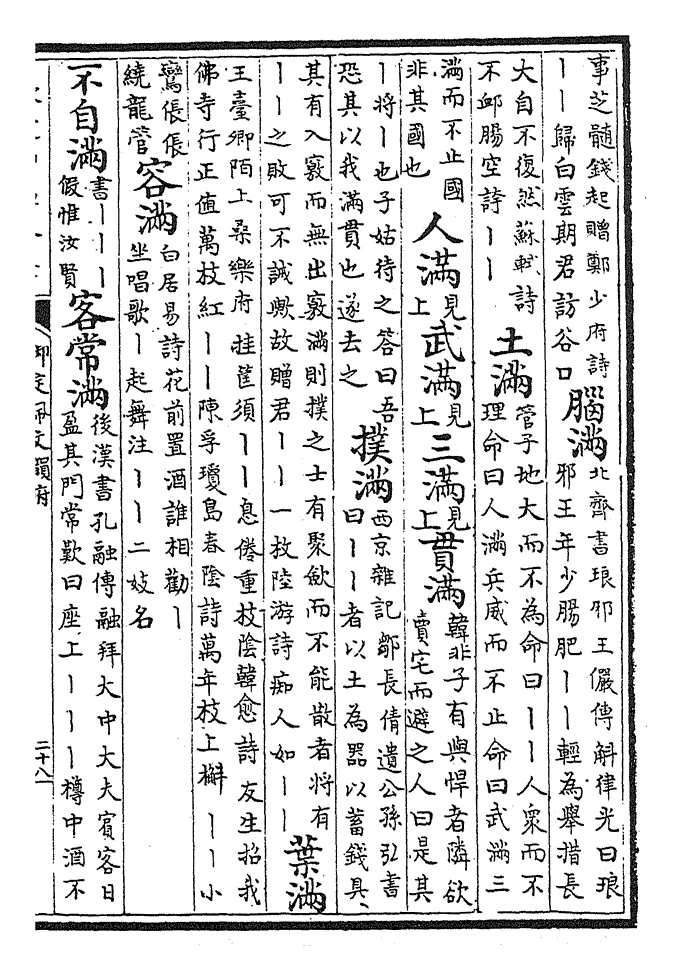 事芝髓錢起贈鄭少府詩丨丨歸白雲期君訪谷口腦滿北齊書琅邪王儼傳斛律光曰琅邪王年少腸肥丨丨輕為舉措長
大自不復然蘇軾詩不卹腸空詩丨丨土滿管子地大而不為命曰丨丨人衆而不理命曰人滿兵威而不止命曰武滿三
滿而不止國非其國也人滿見上武滿見上三滿見上貫滿韓非子有與悍者隣欲賣宅而避之人曰是其
丨將丨也子姑待之答曰吾恐其以我滿貫也遂去之撲滿西京雜記鄒長倩遺公孫弘書曰丨丨者以土為器以蓄錢具、
其有入竅而無出竅滿則撲之士有聚斂而不能散者將有丨丨之敗可不誡歟故贈君丨丨一枚陸游詩痴人如丨丨葉滿
王臺卿陌上桑樂府挂筐須丨丨息倦重枝陰韓愈詩友生招我佛寺行正值萬枝紅丨丨陳孚瓊島春陰詩萬年枝上槲丨丨小
鸞倀倀繞龍管容滿白居易詩花前置酒誰相勸丨坐唱歌丨起舞注丨丨二妓名
不自滿書丨丨丨假惟汝賢客常滿後漢書孔融傳融拜大中大夫賓客日盈其門常歎曰座上丨丨丨樽中酒不
御定佩文韻府
二十八